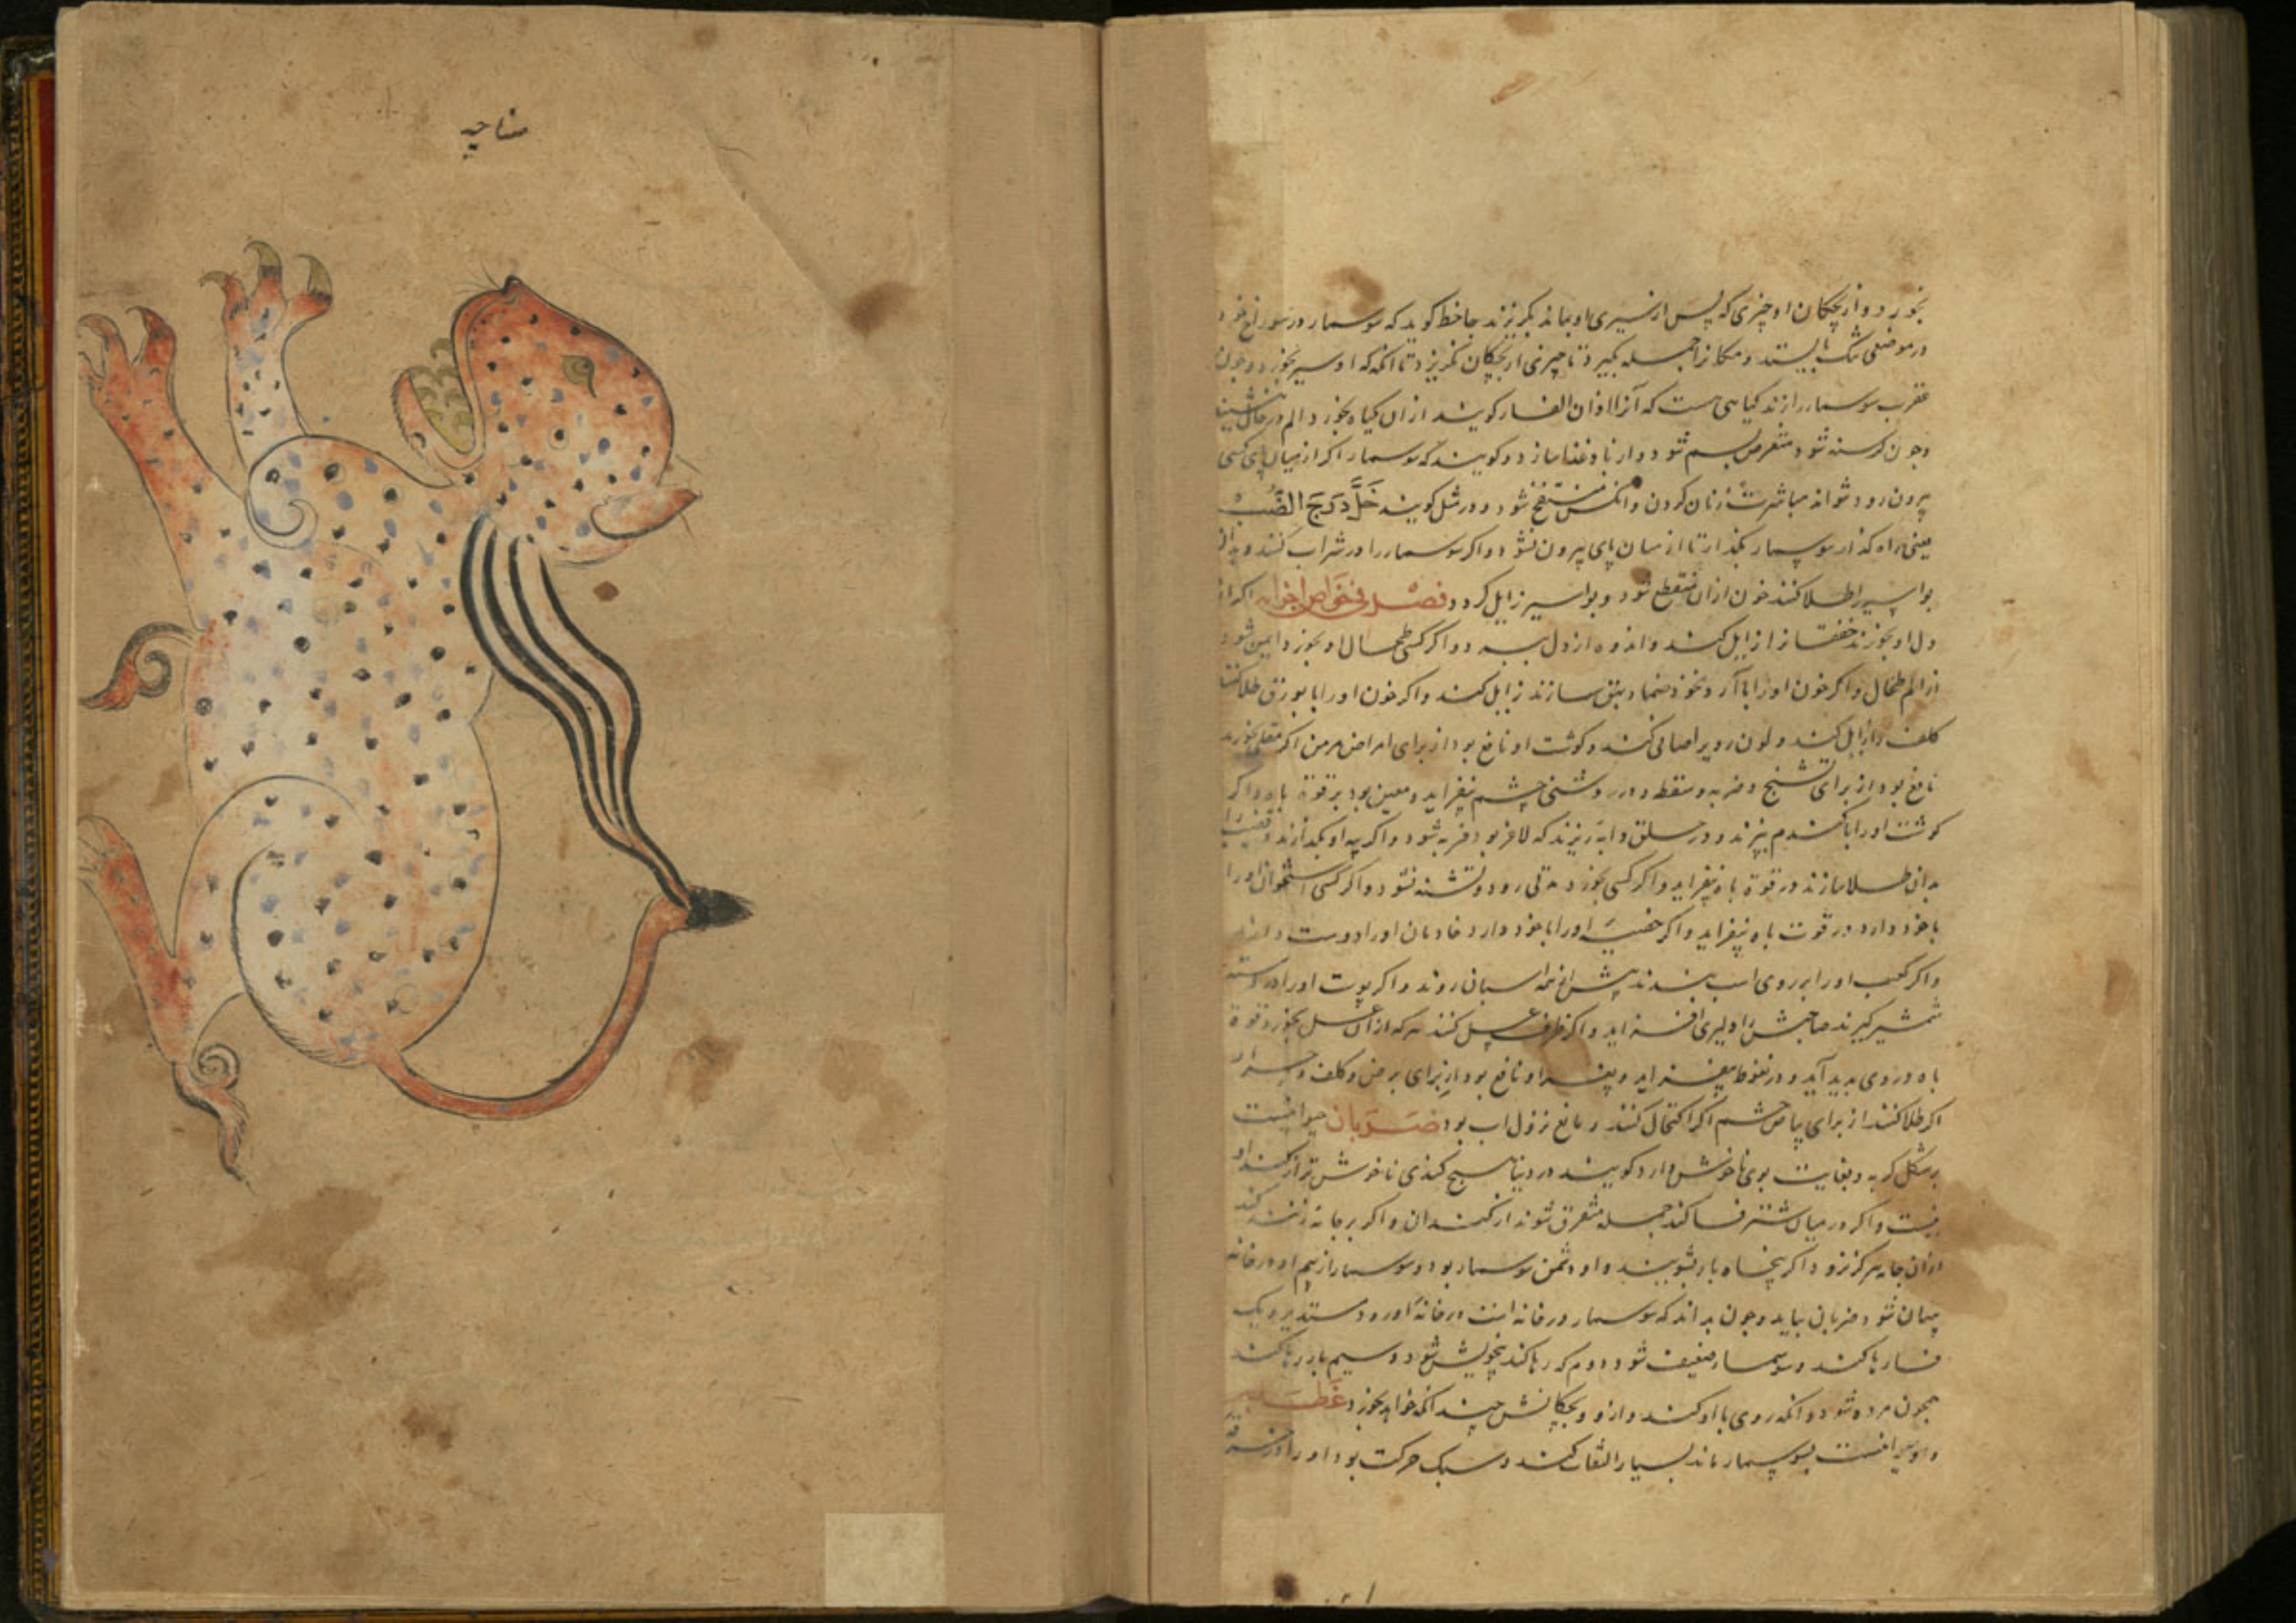 بخورد و از بچکان او چیزی که پس از سیری او بماند بکریزند جاحظ کوید که سوسمار در سوراخ خود
در موضعی تنک بایستد و مکانرا جمله بکیرد تا چیزی از بچکان نکریزد تا انکه که او سیر بخورد و چون
عقرب سوسمار را زند کیاهی هست که آنرا اذان الفار کویند از ان کیاه بخورد الم
و چون کرسنه شود متعرض نسیم شود و از باد غذا سازد و کویند که سوسمار اکر از میان پای کسی
بیرون رود نتواند مباشرت زنان کردن و منتفخ شود و در مثل کویند خَلِّ دَرَجَ الضَّبِّ
یعنی راه کذار سوسمار بکذار تا از میان پای بیرون نشود و اکر سوسمار را در شراب کنند و بدان
بواسیر را طلا کنند خون از ان منقطع شود و بواسیر زایل کردد فصل فی خواص اجزایه اکر از
دل او بخورند خفقان زایل کند و اندوه از دل ببرد و اکر کسی طحال او بخورد ایمن شود
از الم طحال و اکر خون او را با آرد نخود ضماد بهق سازند زایل کند و اکر خون او را با بورق طلا کنند
کلف را زایل کند و لون روی را صافی کند و کوشت او نافع بود از برای امراض مزمن اکر
نافع بود از برای تشنج و ضربه و سقطه و در روشنی چشم بیفزاید و معین بود بر قوة باه و اکر
کوشت او را با کندم بپزند و در حلق دابه ریزند که لاغر بود فربه شود و اکر پیه او بکدازند و قضیب را
بدان طلا سازند در قوة باه بیفزاید و اکر کسی بخورد مدتی رود و تشنه نشود و اکر کسی استخوان او را
با خود دارد در قوت باه بیفزاید و اکر خصیه او را با خود دارد خادمان او را دوست دارند
و اکر کعب او را بر روی اسب بندند پیش از همه اسبان رود و اکر پوست او را در دسته
شمشیر کیرند صاحبش را دلیری افزاید و اکر ظرف عسل کنند هرکه از ان عسل بخورد قوة
باه در وی پدید آید و در نعوظ بیفزاید و او نافع بود از برای برص و کلف
اکر طلا کنند از برای بیاض چشم اکر اکتحال کنند و نافع نزول اب بود ضربان حیوانیست
بر شکل کربه و بغایت بوی ناخوش دارد کویند در دنیا هیچ کندی ناخوش تر از کند او
نیست و اکر در میان شتر فسا کند جمله متفرق شوند از کند ان و اکر بر جامه زنند کند
از ان جامه هرکز نرود اکر پنجاه بار بشویند و او دشمن سوسمار بود و سوسمار از بیم او در خانه
پنهان شود ضربان بیاید و چون بداند که سوسمار در خانه است در خانه او رود
فسا رها کند و سوسمار ضعیف شود دوم که رها کند بیهوش شود و سیم بار رها کند
همچون مرده شود و انکه روی با او کند و از او و بچکانش چندانکه خواهد بخورد
سوسمار ماند بسیار التفات کند و سبک حرکت بود
مناجیه